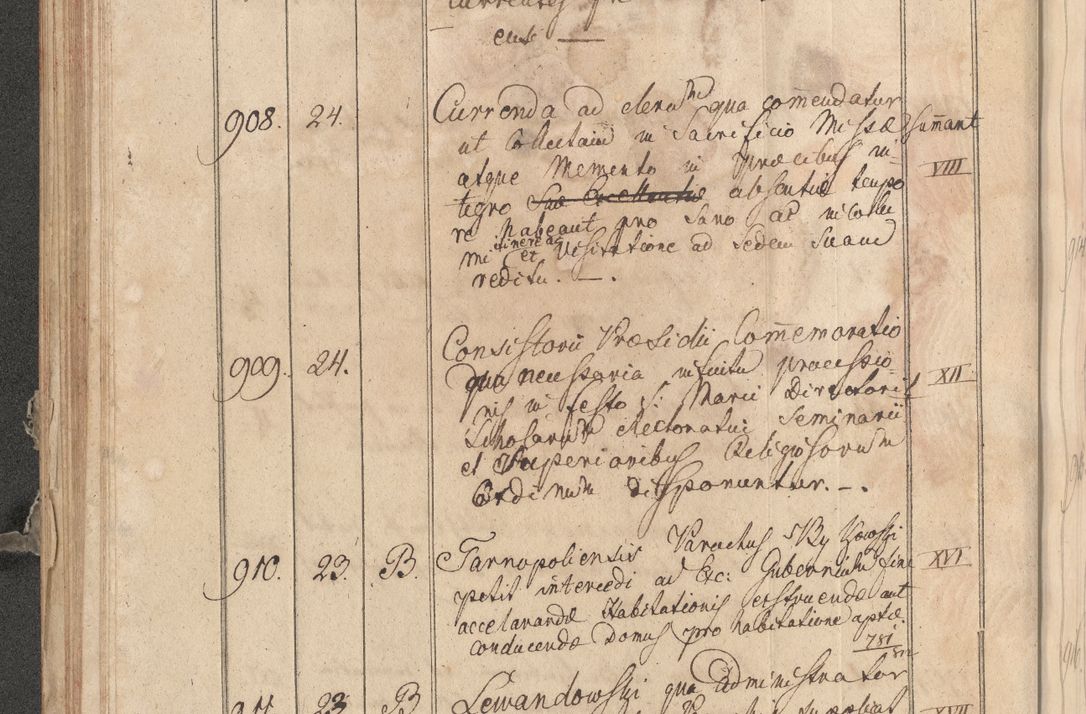 ente —
908. 24. Currenda ad clerum qua comendatur
ut Collectam in Sacrificio Missæ Humant
atque Memento in Præcibus in- VIII
tegro Suæ Excellentiæ absentiæ tempo
re habeant pro Sano ac incolu
mi itinere ac et Visitatione ad Sedem Suam
reditu. —.
909. 24. Consistorii Præsidii Comemoratio
qua necessaria intuitu processio- XII
nis in festo S: Marci Directoris
Scholarum Rectoratui Seminarii
et Superioribus Religiosorum
Ordinum disponuntur. —.
910. 23. B. Tarnopoliensis Parochus petit intercedi ad Exc: Gubernium fine XVI
accelerandæ Habitationis exstruendæ aut
conducendæ Domus pro habitatione aptæ.
781
23 B Lewandowski qua Administrator
XVII